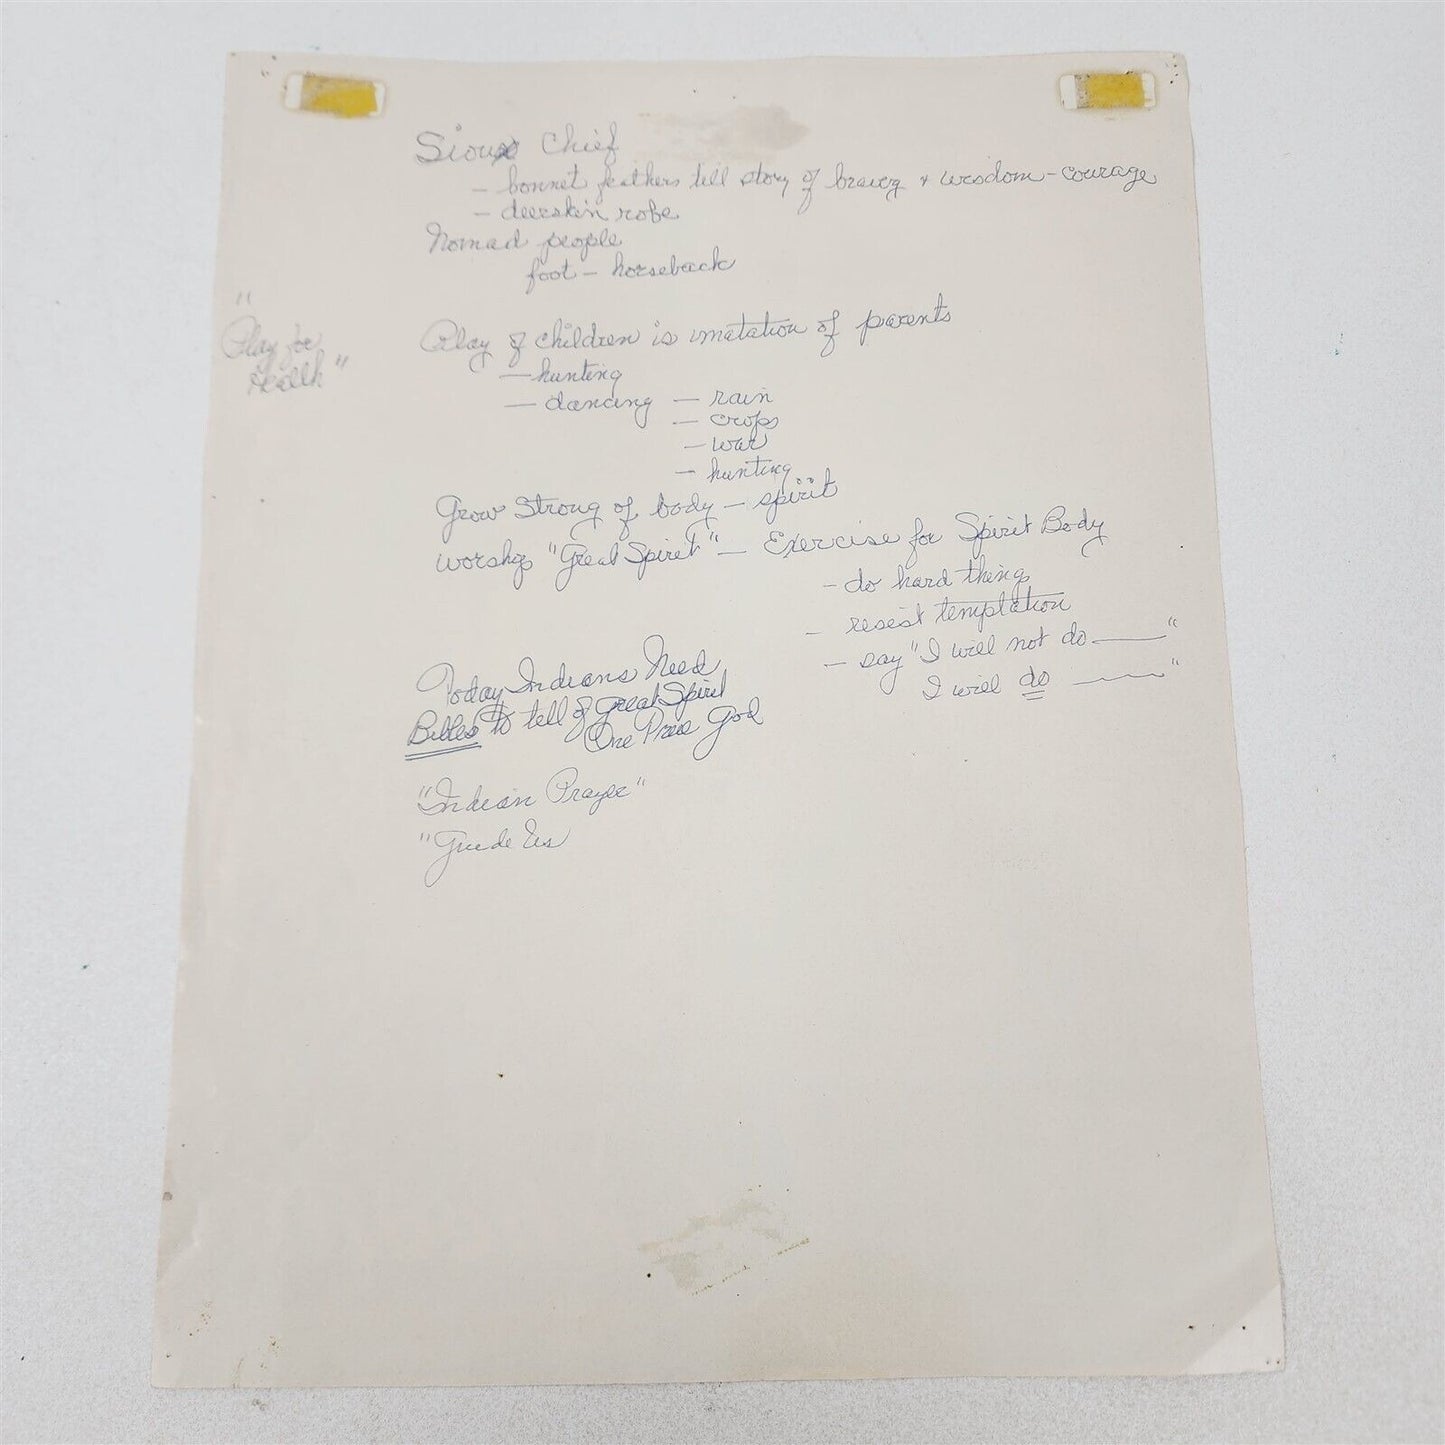 Sioux Chief
- bonnet feathers tell story of bravery + wisdom - courage
- deerskin robe
Nomad people
foot - horseback
"Play for
Health"
Play of children is imatation of parents
- hunting
- dancing - rain
- crops
- war
- hunting
Grow Strong of body - spirit
Worship "Great Spirit" - Exercise for Spirit Body
- do hard things
- resist temptation
- say "I will not do ____"
I will do ____"
Today Indians Need
Bibles to tell of Great Spirit
One True God
"Indian Prayer"
"Guide Us